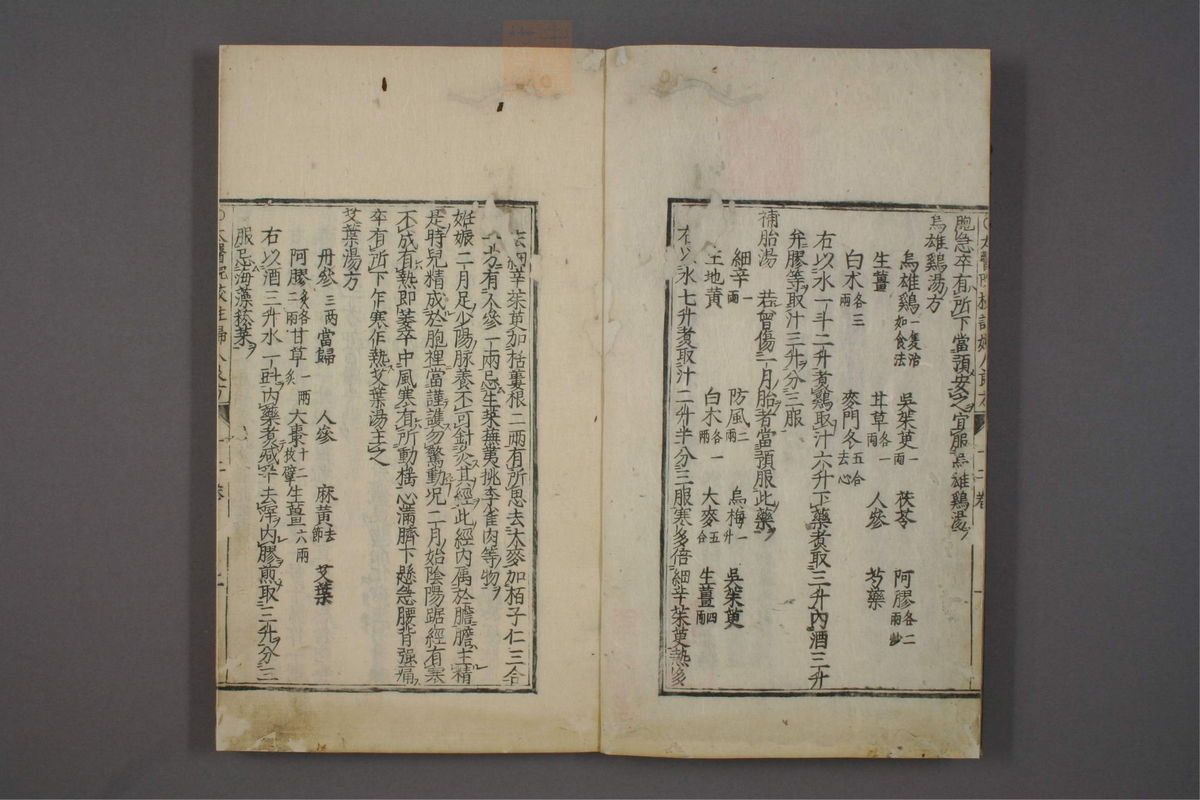 胞急卒有所下當預安之宜服烏雄鷄湯
烏雄鷄湯方
烏雄鷄一隻治如食法 吳茱萸一兩 茯苓 阿膠各二兩炒
生薑 甘草各一兩 人參 芍藥
白朮各三兩 麥門冬五合去心
右以水一斗二升煮鷄取汁六升下藥煮取三升內酒三升
弁膠等取汁三升分三服
補胎湯 若曾傷一月胎者當預服此藥
細辛一兩 防風二兩 烏梅一升 吳茱萸
生地黃 白朮各一兩 大麥五合 生薑四兩
右以水七升煮取汁二升半分三服寒多倍細辛茱萸熱多
去細辛茱萸加栝蔞根二兩有所思去大麥加栢子仁三合
一方有人參一兩忌生菜蕪荑桃李雀肉等物
妊娠二月足少陽脉養不可針灸其經此經內屬於膽膽主精
是時兒精成於胞裡當謹護勿驚動况二月始陰陽踞經有寒
不成有熱即萎卒中風寒有所動搖心滿臍下懸急腰背强痛
卒有所下乍寒乍熱艾葉湯主之
艾葉湯方
丹參三兩 當歸 人參 麻黃去節 艾葉
阿膠炙各二兩 甘草炙一兩 大棗十二枚擘 生薑六兩
右以酒三升水一斗內藥煮减半去滓內膠煎取三升分三
服忌海藻菘菜